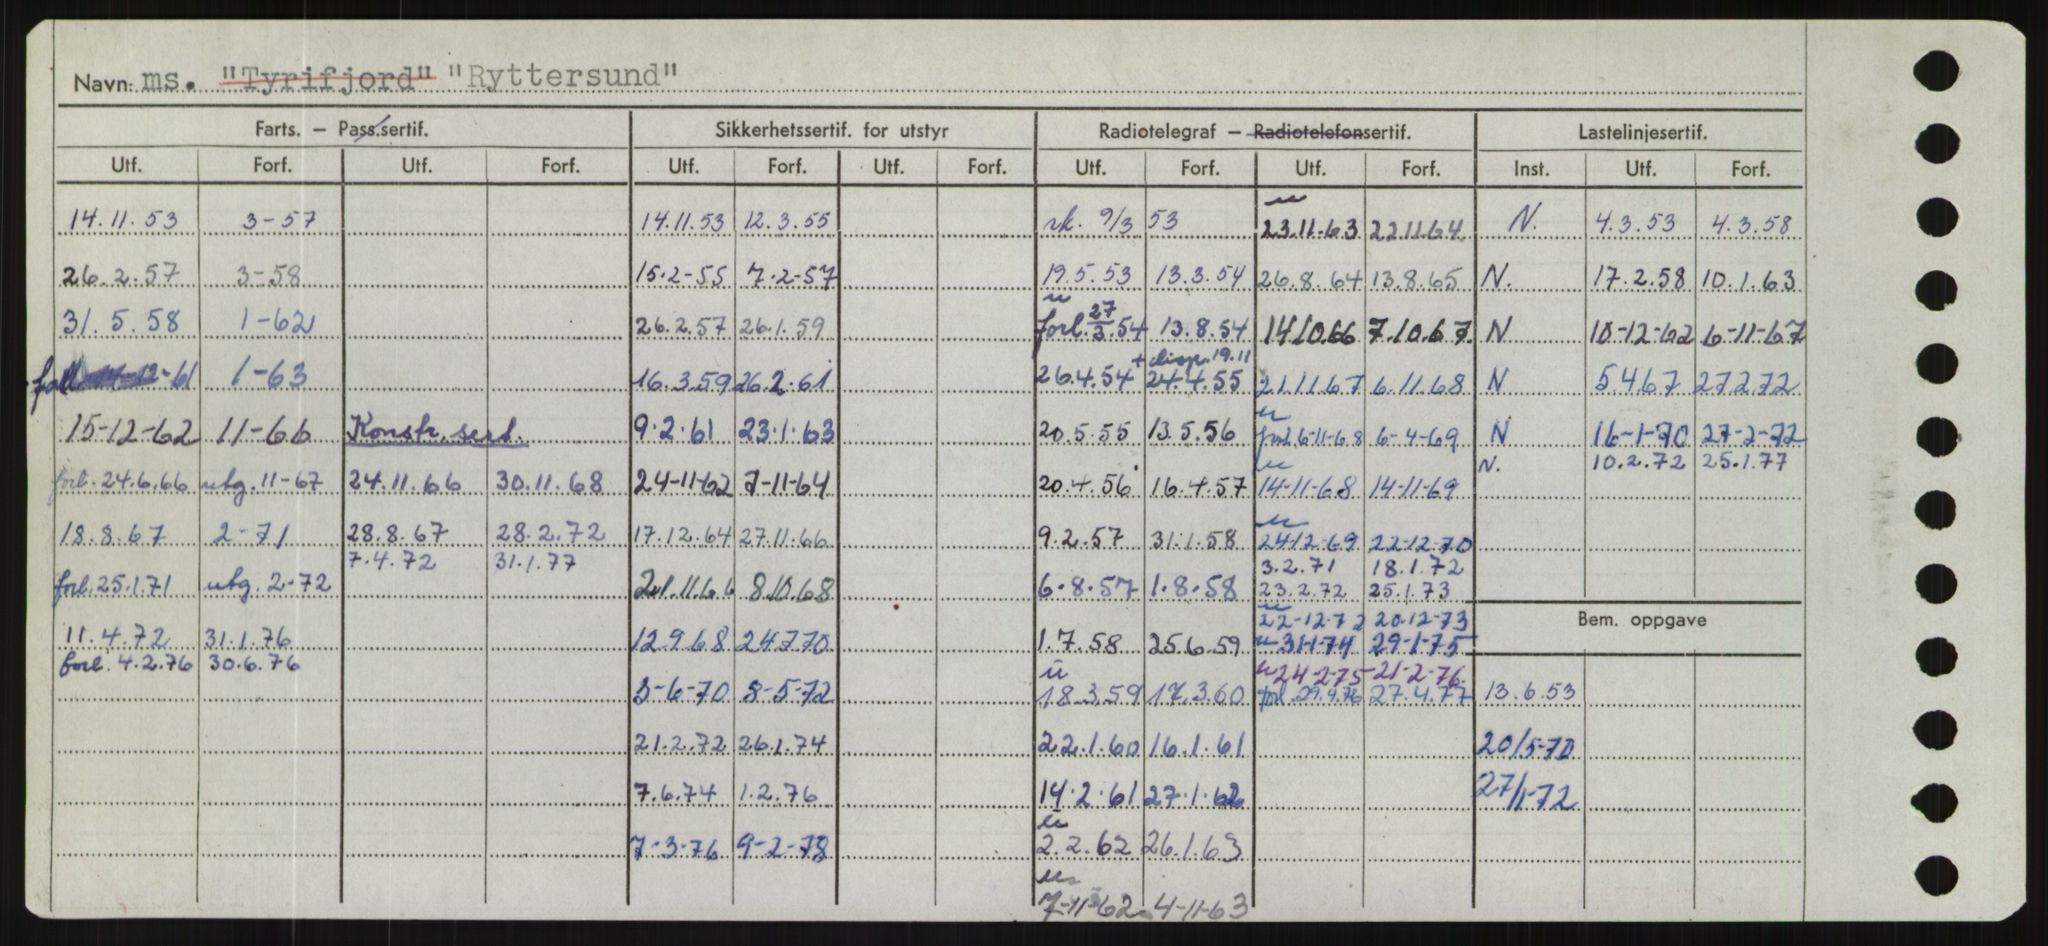 Navn: ms. "Tyrifjord" "Ryttersund"
Farts. – Pass.sertif. Sikkerhetssertif. for utstyr Radiotelegraf – Radiotelefonsertif. Lastelinjesertif.
Utf. Forf. Utf. Forf. Utf. Forf. Utf. Forf. Utf. Forf. Utf. Forf. Inst. Utf. Forf.
14.11.53 3-57 14.11.53 12.3.55 rk. 9/3 53 23.11.63 22.11.64 N. 4.3.53 4.3.58
26.2.57 3-58 15.2-55 7.2-57 19.5.53 13.3.54 26.8.64 13.8.65 N. 17.2.58 10.1.63
31.5.58 1-62 26.2.57 26.1.59 forl. 27/3.54 13.8.54 14.10.66 7.10.67 N 10-12-62 6-11-67
-12-61 1-63 16.3.59 26.2.61 26.4.54 + disp. 19.11 24.4.55 21.11.67 6.11.68 N 5.4.67 27.2.72
15-12-62 11-66 Konstr. sert. 9.2.61 23.1.63 20.5.55 13.5.56 forl. 6-11-68 6-4-69 N 16-1-70 27-2-72
N. 10.2.72 25.1.77
forl. 24.6.66 utg. 11-67 24.11.66 30.11.68 24-11-62 7-11-64 20.4.56 16.4.57 14-11-68 14-11-69
18.8.67 2-71 28.8.67 28.2.72 17.12.64 27.11.66 9.2.57 31.1.58 24-12-69 22-12-70
7.4.72 31.1.77 3.2.71 18.1.72
forl. 25.1.71 utg. 2-72 21.11.66 8.10.68 6.8.57 1.8.58 23.2.72 25.1.73
22-12-72 20-12-73 Bem. oppgave
11.4.72 31.1.76 12.9.68 24.7.70 1.7.58 25.6.59 31-1-74 29-1-75
forl. 4.2.76 30.6.76 24-2-75 21-2-76
3-6-70 8-5-72 18.3.59 17.3.60 forl. 29.4.76 27.4.77 13.6.53
21.2.72 26.1.74 22.1.60 16.1.61 20/5-70
7.6.74 1.2.76 14.2.61 27.1.62 27/1-72
7-3-76 9-2-78 2.2.62 26.1.63
7-11-62 4-11-63